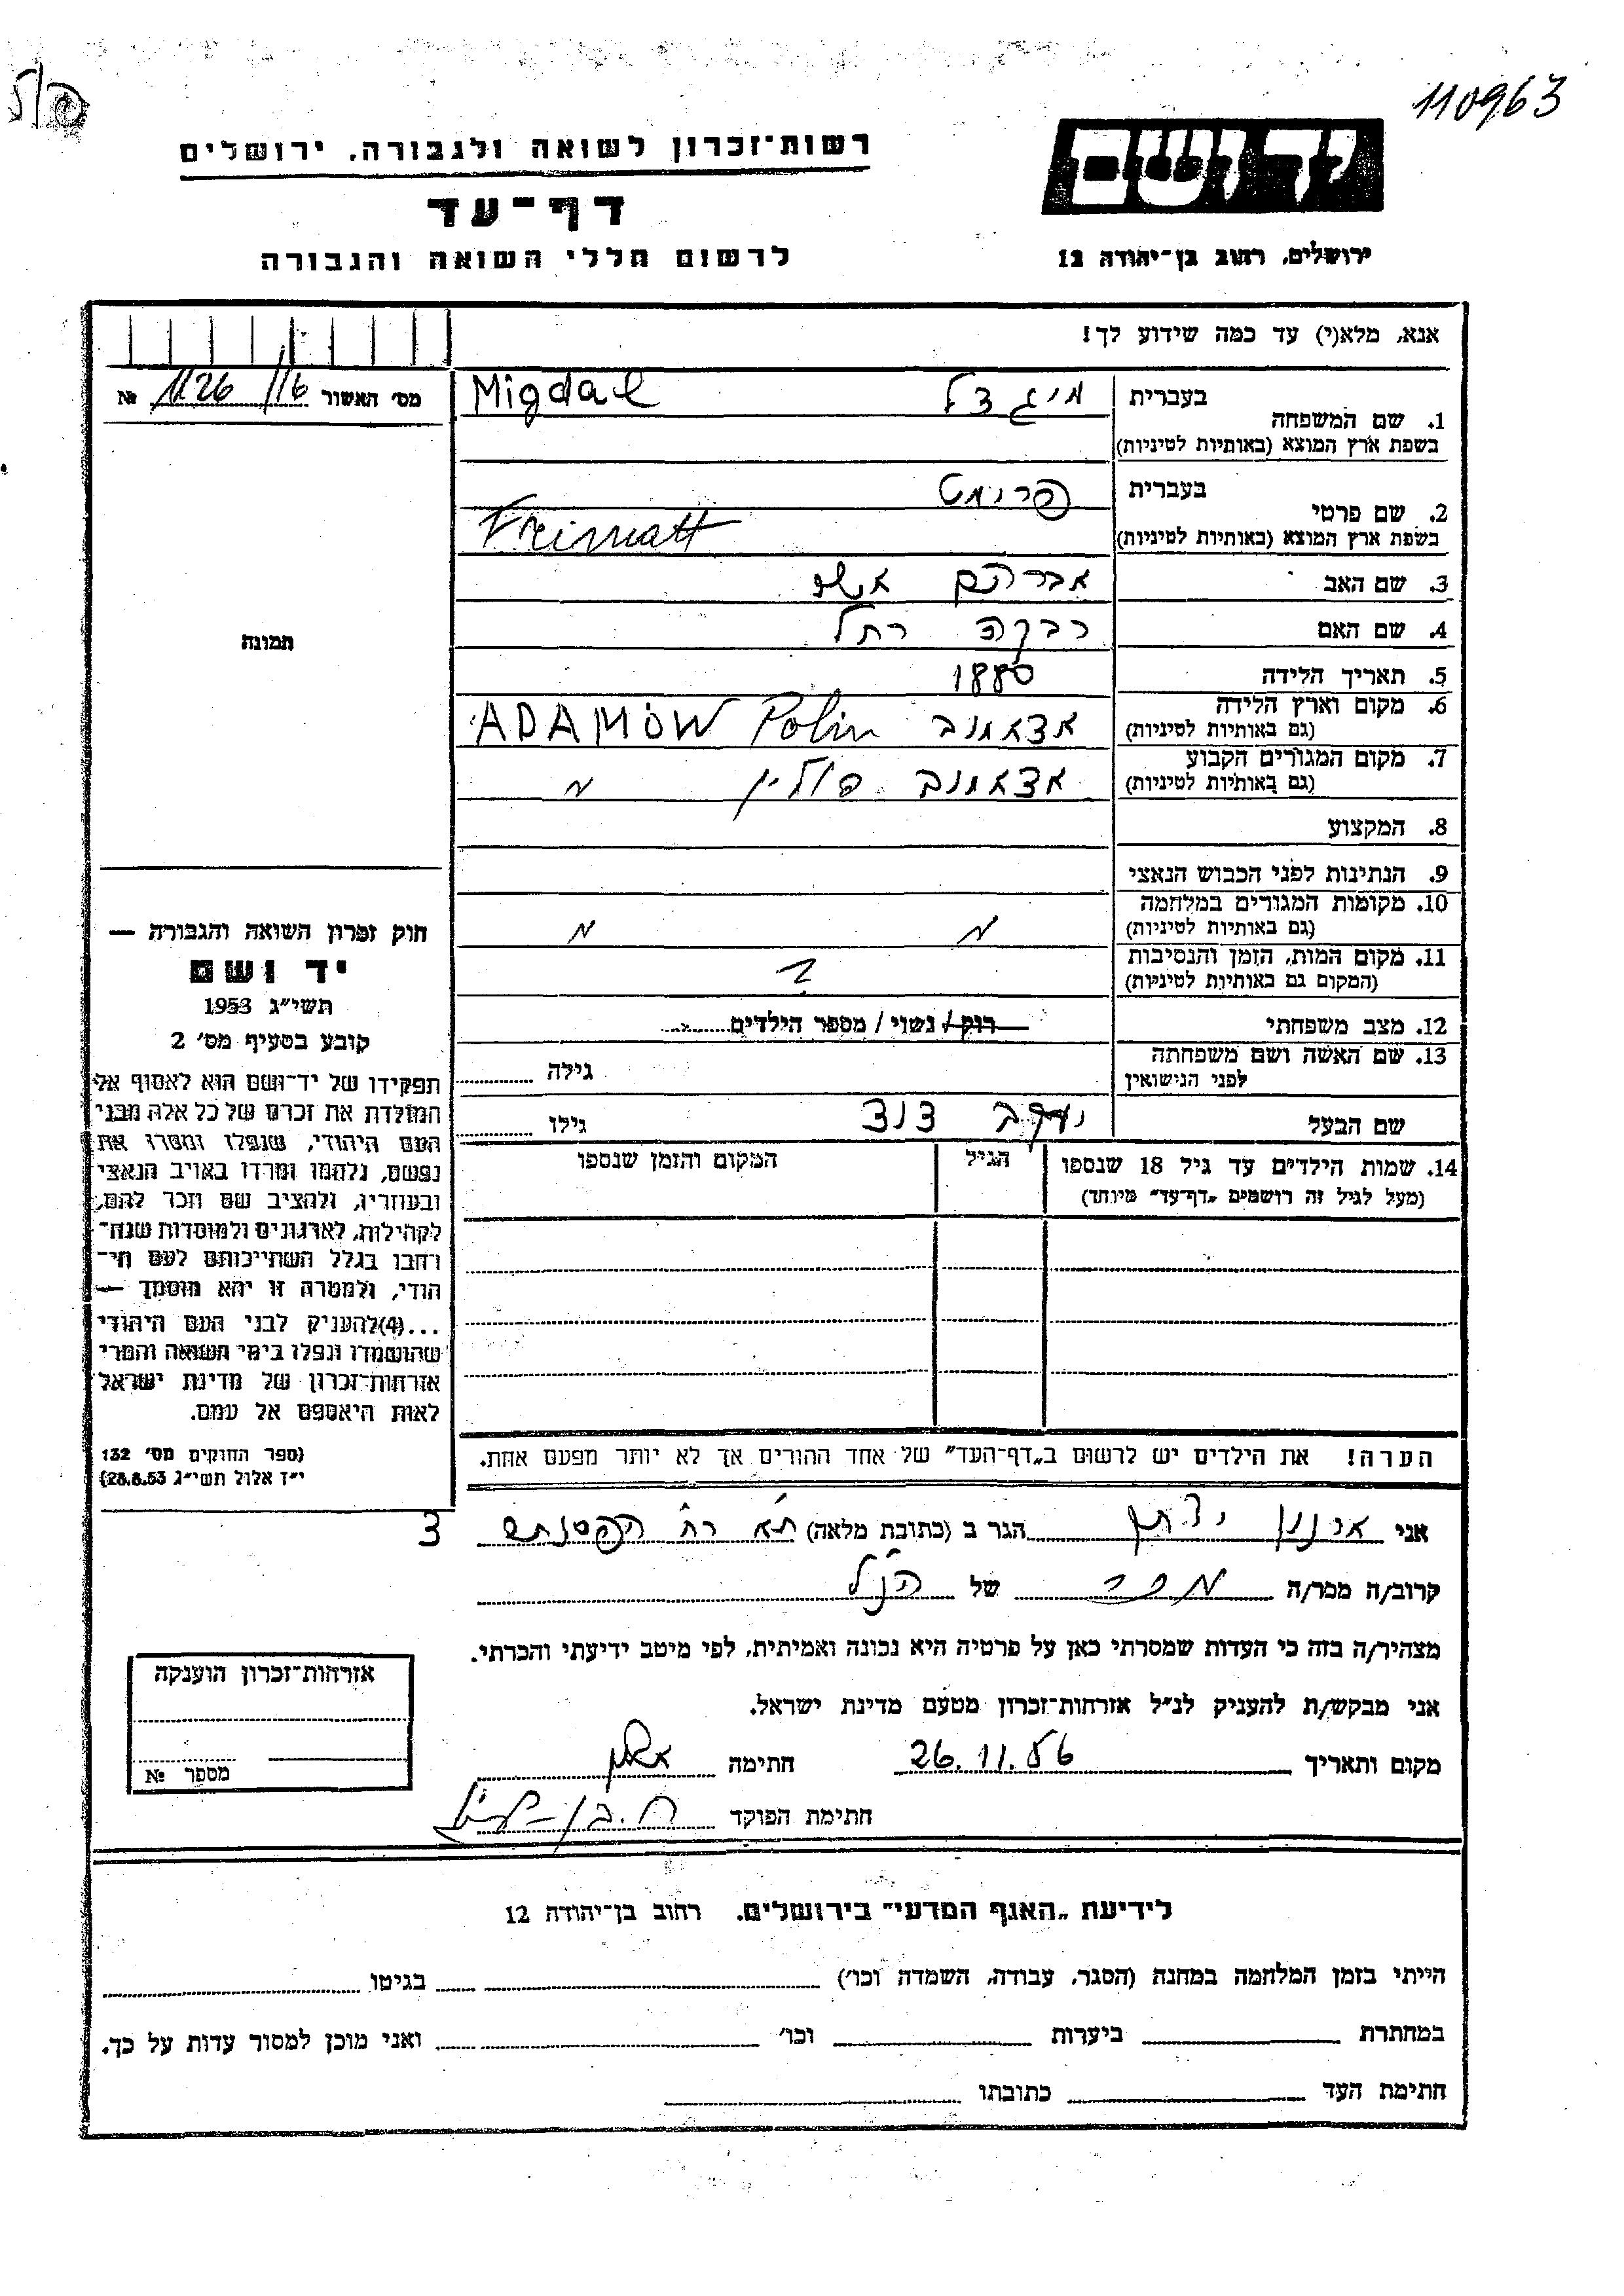 110963
רשות־זכרון לשואה ולגבורה, ירושלים
דף־עד
לרשום חללי השואה והגבורה
יד ושם
ירושלים, רחוב בן־יהודה 12
אנא, מלא(י) עד כמה שידוע לך!
מס׳ האשור 1126/16 №
1. שם המשפחה
בעברית מיגדל Migdal
בשפת ארץ המוצא (באותיות לטיניות)
2. שם פרטי
בעברית פרימט
בשפת ארץ המוצא (באותיות לטיניות) Freimatt
3. שם האב אברהם אשר
4. שם האם רבקה רחל
5. תאריך הלידה 1880
6. מקום וארץ הלידה
(גם באותיות לטיניות) אדאמוב Polin ADAMÓW
7. מקום המגורים הקבוע
(גם באותיות לטיניות) אדאמוב פולין
8. המקצוע
9. הנתינות לפני הכבוש הנאצי
10. מקומות המגורים במלחמה
(גם באותיות לטיניות)
11. מקום המות, הזמן והנסיבות
(המקום גם באותיות לטיניות) ?
12. מצב משפחתי רוק / נשוי / מספר הילדים
13. שם האשה ושם משפחתה
לפני הנישואין גילה
שם הבעל יעקב דוד גילו
14. שמות הילדים עד גיל 18 שנספו
(מעל לגיל זה רושמים „דף־עד״ מיוחד)
הגיל
המקום והזמן שנספו
הערה! את הילדים יש לרשום ב„דף־העד״ של אחד ההורים אך לא יותר מפעם אחת.
תמונה
חוק זכרון השואה והגבורה —
יד ושם
תשי״ג 1953
קובע בסעיף מס׳ 2
תפקידו של יד־ושם הוא לאסוף אל
המולדת את זכרם של כל אלה מבני
העם היהודי, שנפלו ומסרו את
נפשם, נלחמו ומרדו באויב הנאצי
ובעוזריו, ולהציב שם וזכר להם,
לקהילות, לארגונים ולמוסדות שנח־
רחבו בגלל השתייכותם לעם הי־
הודי, ולמטרה זו יהא מוסמך —
...(4)להעניק לבני העם היהודי
שהושמדו ונפלו בימי השואה והמרי
אזרחות־זכרון של מדינת ישראל
לאות היאספם אל עמם.
(ספר החוקים מס׳ 132
י״ז אלול תשי״ג 28.8.53)
אני הגר ב (כתובת מלאה) ת״א רח׳ 3
קרוב/ה מכר/ה מכר של הנ״ל
מצהיר/ה בזה כי העדות שמסרתי כאן על פרטיה היא נכונה ואמיתית, לפי מיטב ידיעתי והכרתי.
אני מבקש/ת להעניק לנ״ל אזרחות־זכרון מטעם מדינת ישראל.
מקום ותאריך 26.11.56 חתימה
חתימת הפוקד
אזרחות־זכרון הוענקה
מספר №
לידיעת „האגף המדעי״ בירושלים, רחוב בן־יהודה 12
הייתי בזמן המלחמה במחנה (הסגר, עבודה, השמדה וכו׳) בגיטו
במחתרת ביערות וכו׳ ואני מוכן למסור עדות על כך.
חתימת העד כתובתו